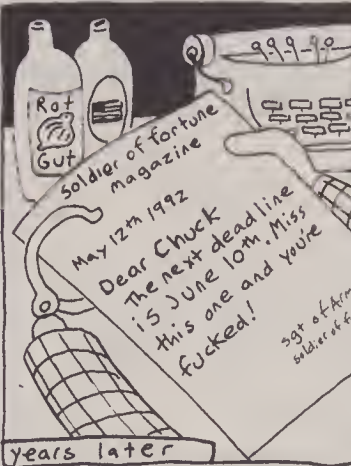 Rot
Gut
9-9-9-9-9
soldier of fortune
magazine
May 12th 1992
Dear Chuck
The next deadline
is June 10th. Miss
this one and you're
fucked!
sgt of Arm
soldier of f
years later